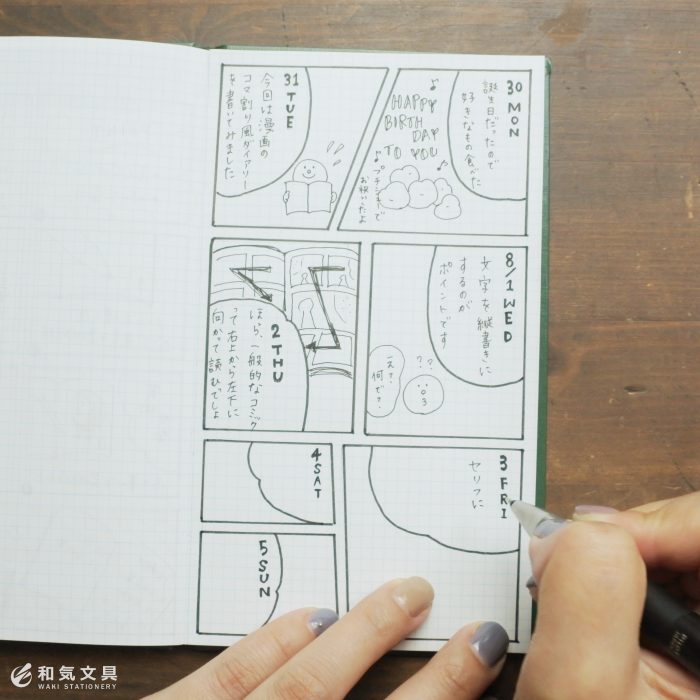 30 MON
誕生日だったので
好きなもの食べた
HAPPY
BIRTH
DAY
TO YOU
プチシューで
お祝いしたよ
31 TUE
今回は漫画の
コマ割り風ダイアリー
を書いてみました
8/1 WED
文字を縦書きに
するのが
ポイントです
??
え？
何で？
2 THU
ほら、一般的なコミック
って右上から左下に
向かって読むでしょ
3 FRI
セリフに
4 SAT
5 SUN
和気文具
WAKI STATIONERY